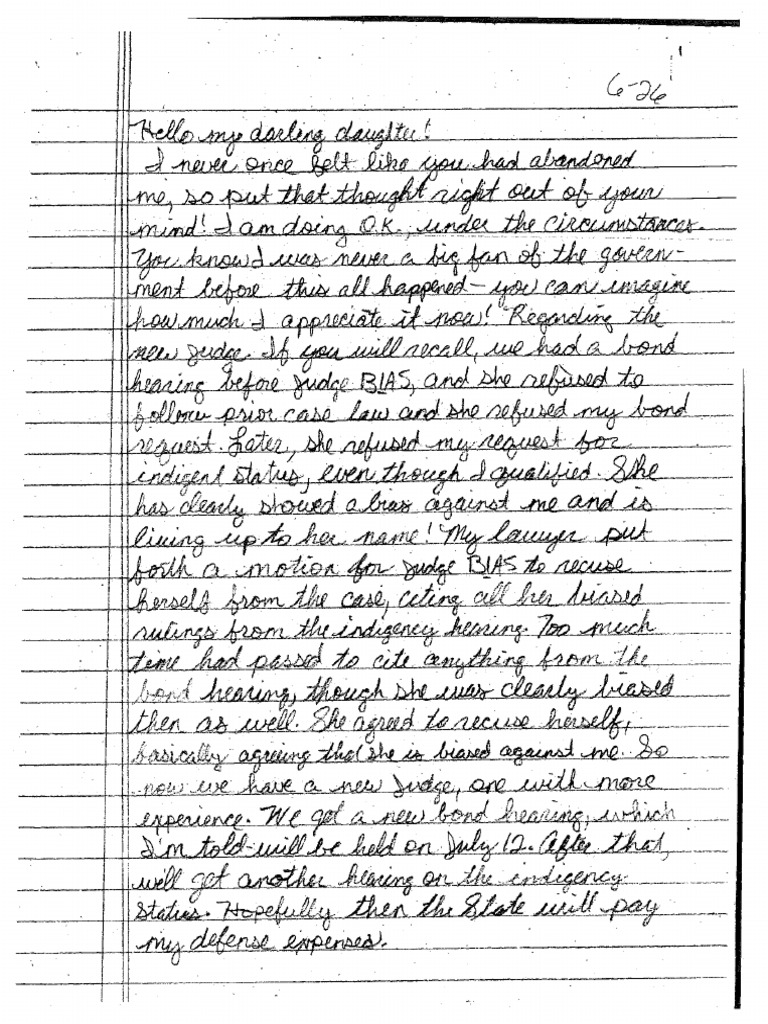 6-26
Hello my darling daughter!
I never once felt like you had abandoned
me, so put that thought right out of your
mind! I am doing O.K., under the circumstances.
You know I was never a big fan of the govern-
ment before this all happened - you can imagine
how much I appreciate it now! Regarding the
new judge. If you will recall, we had a bond
hearing before Judge BIAS, and she refused to
follow prior case law and she refused my bond
request. Later, she refused my request for
indigent status, even though I qualified. She
has clearly showed a bias against me and is
living up to her name! My lawyer put
forth a motion for Judge BIAS to recuse
herself from the case, citing all her biased
rulings from the indigency hearing. Too much
time had passed to cite anything from the
bond hearing, though she was clearly biased
then as well. She agreed to recuse herself,
basically agreeing that she is biased against me. So
now we have a new Judge, one with more
experience. We get a new bond hearing, which
I'm told will be held on July 12. After that,
we'll get another hearing on the indigency
Status. Hopefully then the State will pay
my defense expenses.